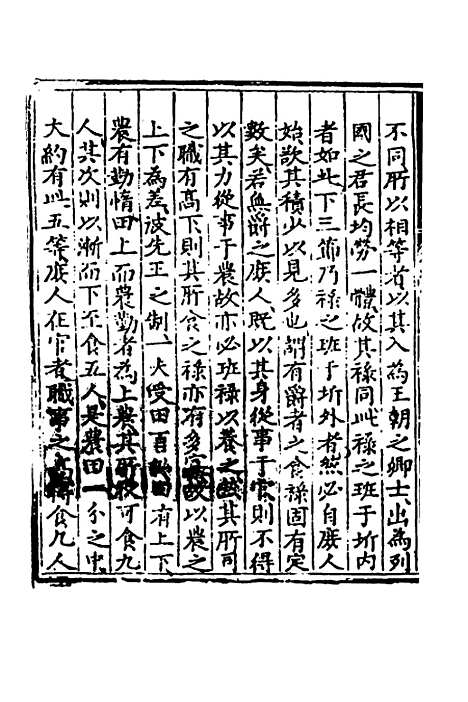 不同所以相等者以其入為王朝之卿士出為列
國之君長均勞一體故其祿同此祿之班于圻內
者如此下三節乃祿之班于圻外者然必自庶人
始欲其積少以見多也謂有爵者之食祿固有定
數矣若無爵之庶人既以其身從事于官則不得
以其力從事于農故亦必班祿以養之其所司
之職有高下則其所食之祿亦有多以農之
上下為差彼先王之制一夫受田百畝田有上下
農有勤惰田上而農勤者為上農其所收可食九
人其次則以漸而下至食五人是農田一分之中
大約有此五等庶人在官者職事之食九人